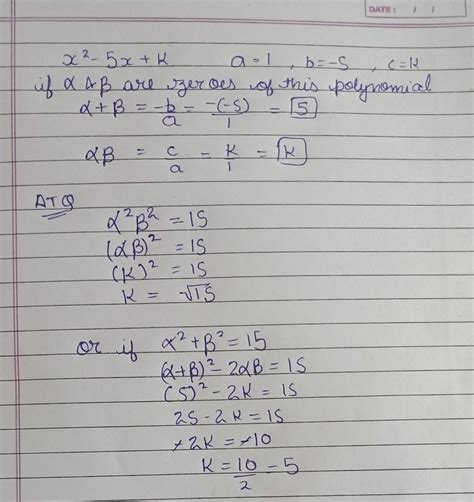 DATE: / /
x² - 5x + k    a = 1 , b = -5 , c = k
if α & β are zeroes of this polynomial
α + β = -b/a = -(-5)/1 = 5
αβ = c/a = k/1 = k
ATQ
α²β² = 15
(αβ)² = 15
(k)² = 15
k = √15
or if α² + β² = 15
(α+β)² - 2αβ = 15
(5)² - 2k = 15
25 - 2k = 15
-2k = -10
k = 10/2 - 5